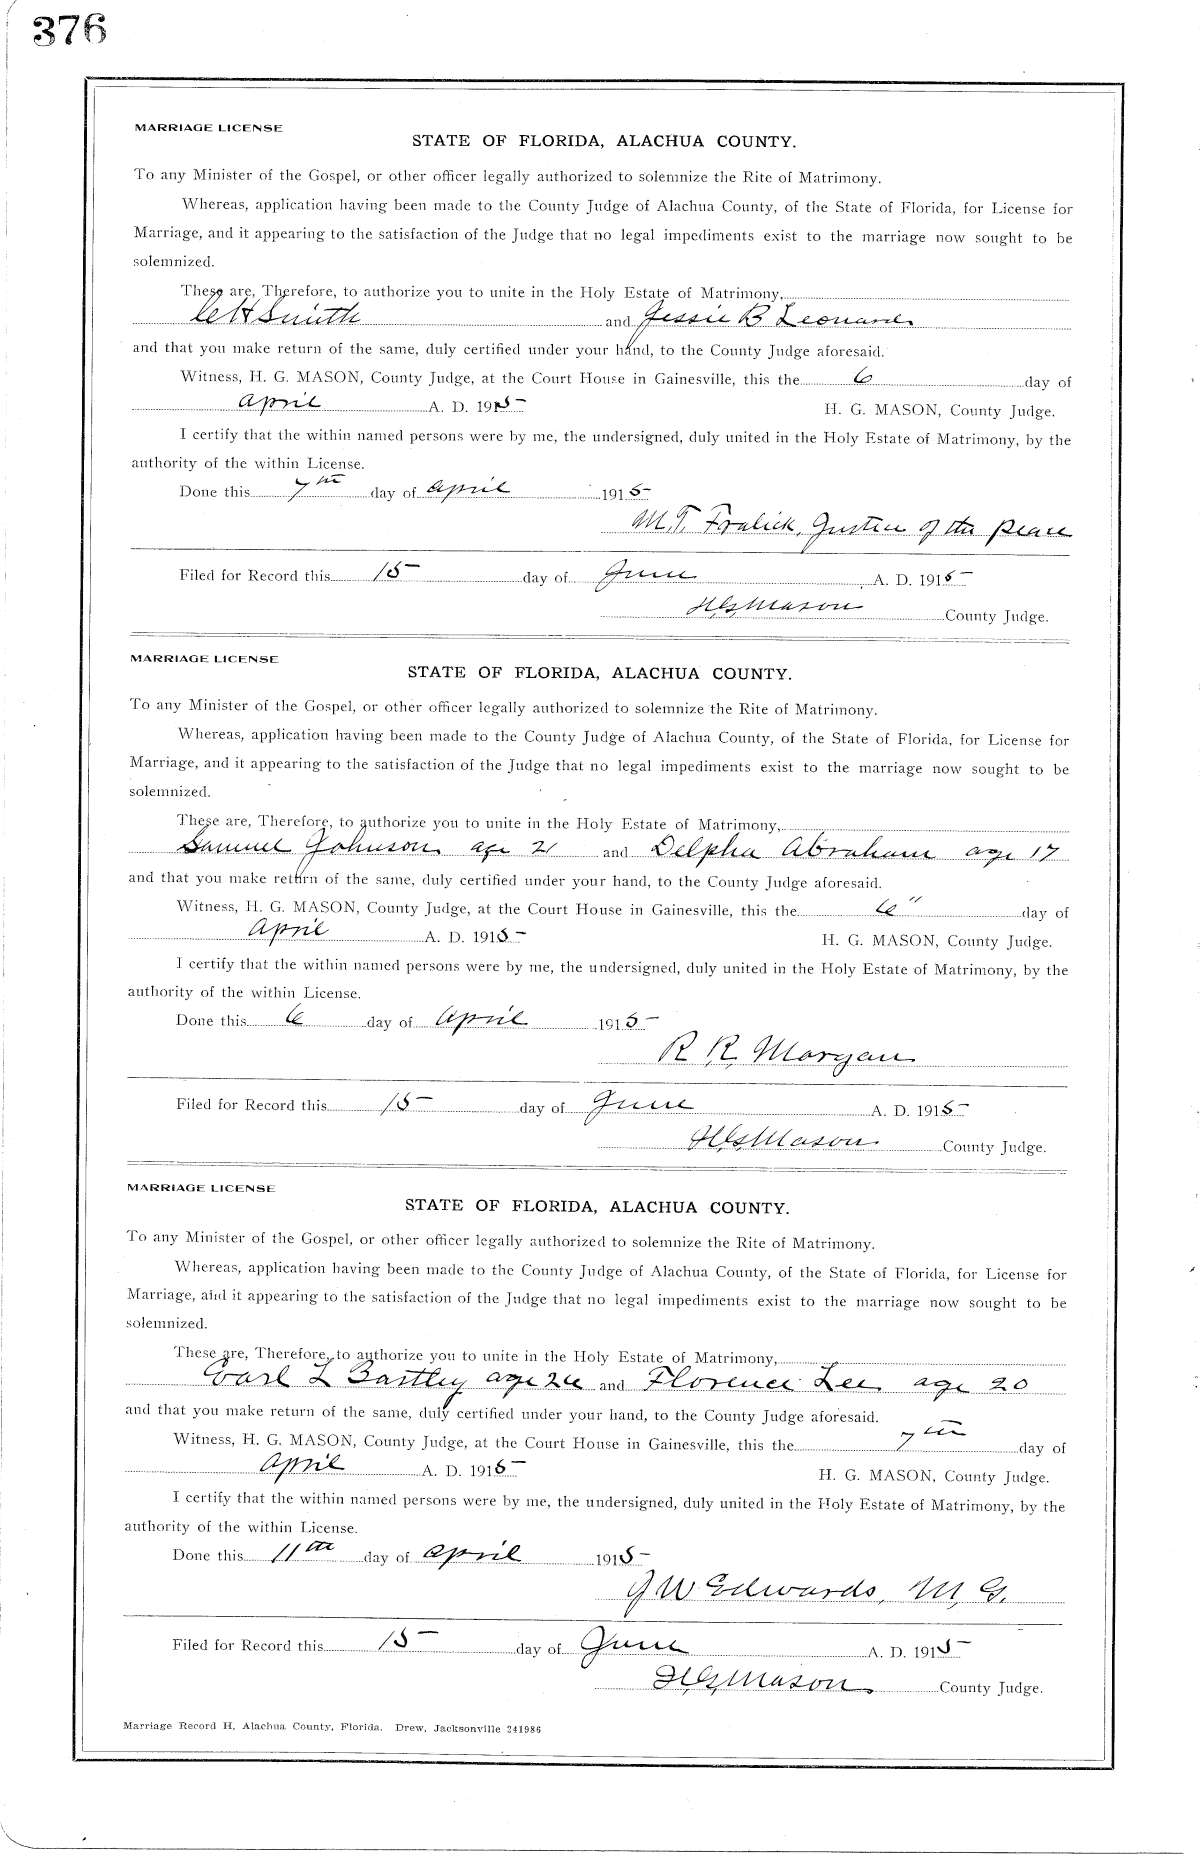 376
MARRIAGE LICENSE
STATE OF FLORIDA, ALACHUA COUNTY.
To any Minister of the Gospel, or other officer legally authorized to solemnize the Rite of Matrimony.
Whereas, application having been made to the County Judge of Alachua County, of the State of Florida, for License for
Marriage, and it appearing to the satisfaction of the Judge that no legal impediments exist to the marriage now sought to be
solemnized.
These are, Therefore, to authorize you to unite in the Holy Estate of Matrimony,
C H Smith and Jessie B Leonard
and that you make return of the same, duly certified under your hand, to the County Judge aforesaid.
Witness, H. G. MASON, County Judge, at the Court House in Gainesville, this the 6 day of
April A. D. 1915 H. G. MASON, County Judge.
I certify that the within named persons were by me, the undersigned, duly united in the Holy Estate of Matrimony, by the
authority of the within License.
Done this 7th day of April 1915
M. T. Fralick, Justice of the Peace
Filed for Record this 15 day of June A. D. 1915
H. G. Mason County Judge.
MARRIAGE LICENSE
STATE OF FLORIDA, ALACHUA COUNTY.
To any Minister of the Gospel, or other officer legally authorized to solemnize the Rite of Matrimony.
Whereas, application having been made to the County Judge of Alachua County, of the State of Florida, for License for
Marriage, and it appearing to the satisfaction of the Judge that no legal impediments exist to the marriage now sought to be
solemnized.
These are, Therefore, to authorize you to unite in the Holy Estate of Matrimony,
Samuel Johnson age 21 and Delpha Abraham age 17
and that you make return of the same, duly certified under your hand, to the County Judge aforesaid.
Witness, H. G. MASON, County Judge, at the Court House in Gainesville, this the 6" day of
April A. D. 1915 H. G. MASON, County Judge.
I certify that the within named persons were by me, the undersigned, duly united in the Holy Estate of Matrimony, by the
authority of the within License.
Done this 6 day of April 1915
R. R. Morgan
Filed for Record this 15 day of June A. D. 1915
H. G. Mason County Judge.
MARRIAGE LICENSE
STATE OF FLORIDA, ALACHUA COUNTY.
To any Minister of the Gospel, or other officer legally authorized to solemnize the Rite of Matrimony.
Whereas, application having been made to the County Judge of Alachua County, of the State of Florida, for License for
Marriage, and it appearing to the satisfaction of the Judge that no legal impediments exist to the marriage now sought to be
solemnized.
These are, Therefore, to authorize you to unite in the Holy Estate of Matrimony,
Earl L Bartley age 26 and Florence Lee age 20
and that you make return of the same, duly certified under your hand, to the County Judge aforesaid.
Witness, H. G. MASON, County Judge, at the Court House in Gainesville, this the 7th day of
April A. D. 1915 H. G. MASON, County Judge.
I certify that the within named persons were by me, the undersigned, duly united in the Holy Estate of Matrimony, by the
authority of the within License.
Done this 11th day of April 1915
J W Edwards, M. G.
Filed for Record this 15 day of June A. D. 1915
H. G. Mason County Judge.
Marriage Record H, Alachua County, Florida. Drew, Jacksonville 241986